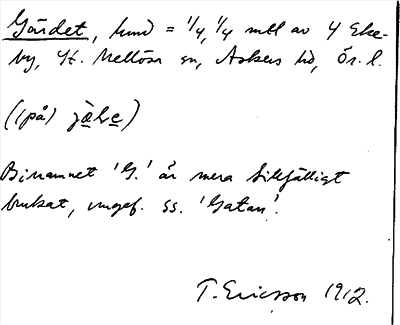 Gärdet, hmd = 1/4, 1/4 mtl av 4 Eke-
by, St. Mellösa sn, Askers hd, Ör. l.
((på) jäḷe)
Binamnet 'G.' är mera tillfälligt
brukat, ungef. ss. 'Gatan'.
T. Ericsson 1912.